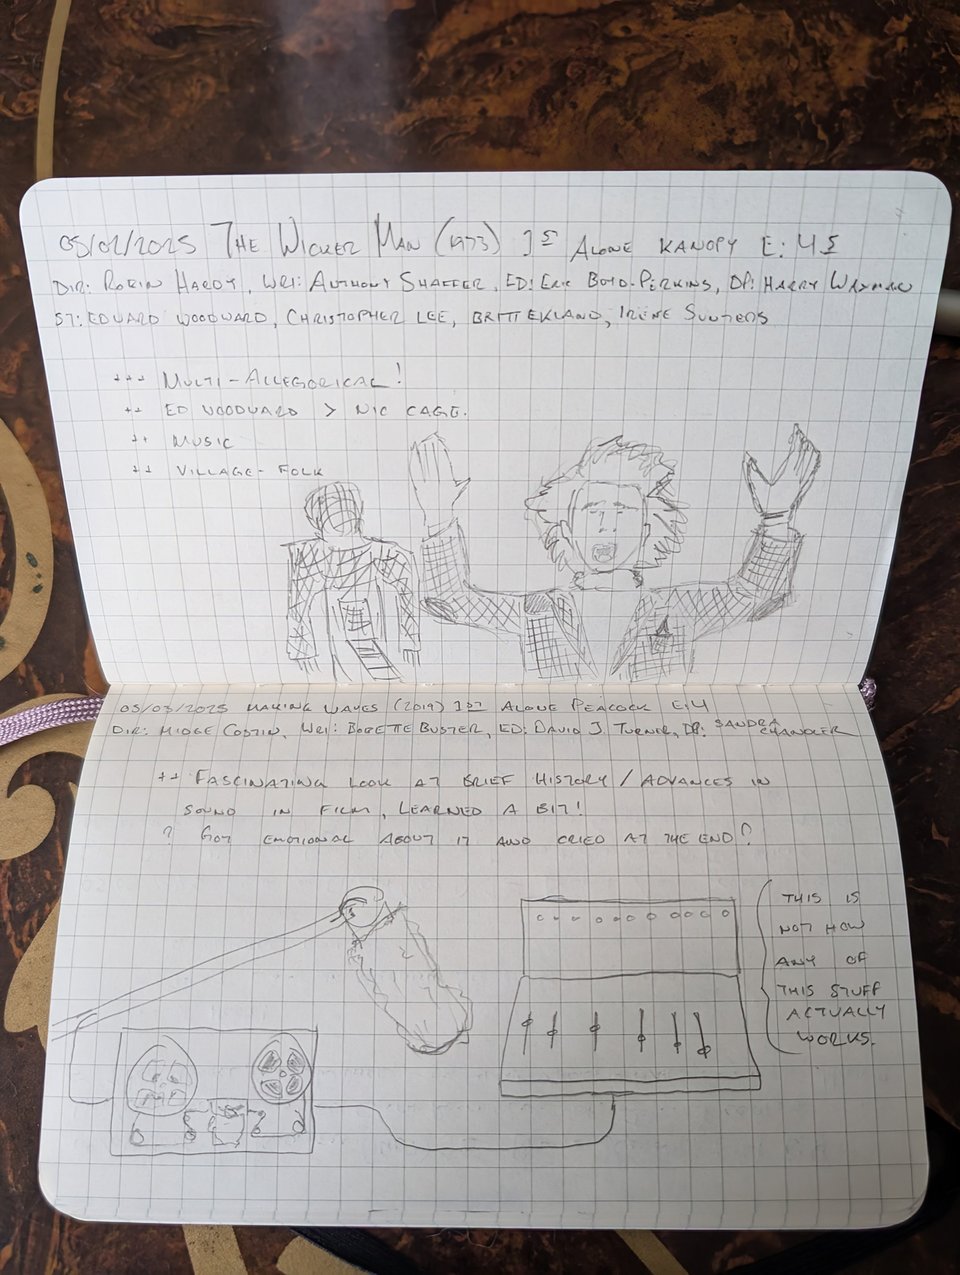 05/02/2025 THE WICKER MAN (1973) 1ST ALONE KANOPY E: 4.5
DIR: ROBIN HARDY, WRI: ANTHONY SHAFFER, ED: ERIC BOYD-PERKINS, DP: HARRY WAXMAN
ST: EDWARD WOODWARD, CHRISTOPHER LEE, BRITT EKLAND, IRENE SUNTERS
+++ MULTI-ALLEGORICAL!
++ ED WOODWARD > NIC CAGE.
++ MUSIC
++ VILLAGE-FOLK
05/03/2025 MAKING WAVES (2019) 1ST ALONE PEACOCK E: 4
DIR: MIDGE COSTIN, WRI: BOBETTE BUSTER, ED: DAVID J. TURNER, DP: SANDRA CHANDLER
++ FASCINATING LOOK AT BRIEF HISTORY/ADVANCES IN
SOUND IN FILM, LEARNED A BIT!
? GOT EMOTIONAL ABOUT IT AND CRIED AT THE END?
THIS IS
NOT HOW
ANY OF
THIS STUFF
ACTUALLY
WORKS.